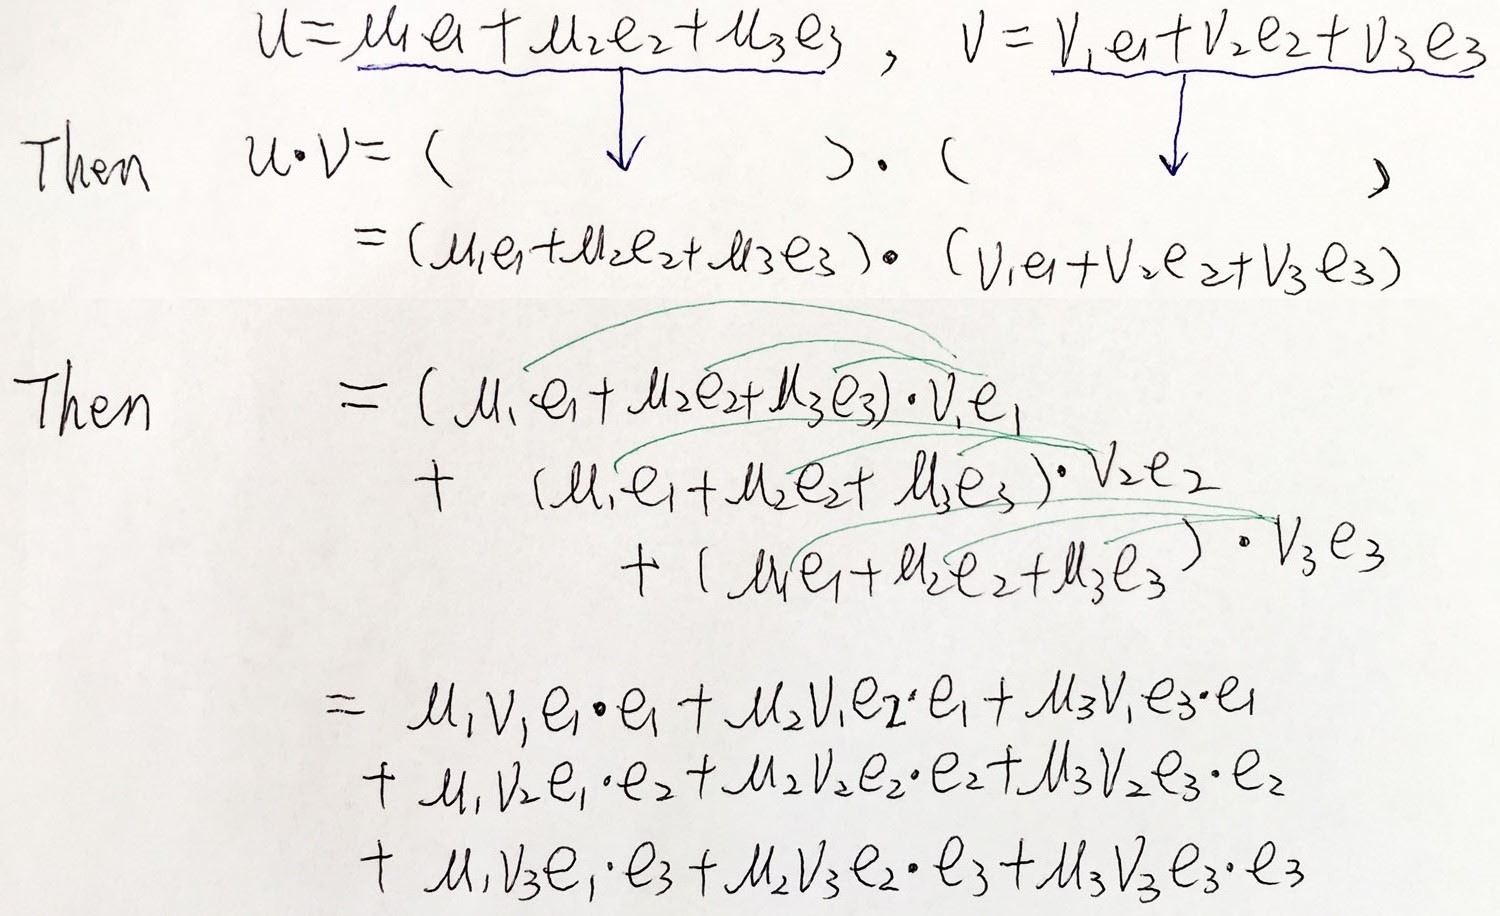 u = u₁e₁ + u₂e₂ + u₃e₃ , v = v₁e₁ + v₂e₂ + v₃e₃
Then u·v = ( ) · ( )
= (u₁e₁ + u₂e₂ + u₃e₃) · (v₁e₁ + v₂e₂ + v₃e₃)
Then = (u₁e₁ + u₂e₂ + u₃e₃) · v₁e₁
+ (u₁e₁ + u₂e₂ + u₃e₃) · v₂e₂
+ (u₁e₁ + u₂e₂ + u₃e₃) · v₃e₃
= u₁v₁e₁·e₁ + u₂v₁e₂·e₁ + u₃v₁e₃·e₁
+ u₁v₂e₁·e₂ + u₂v₂e₂·e₂ + u₃v₂e₃·e₂
+ u₁v₃e₁·e₃ + u₂v₃e₂·e₃ + u₃v₃e₃·e₃